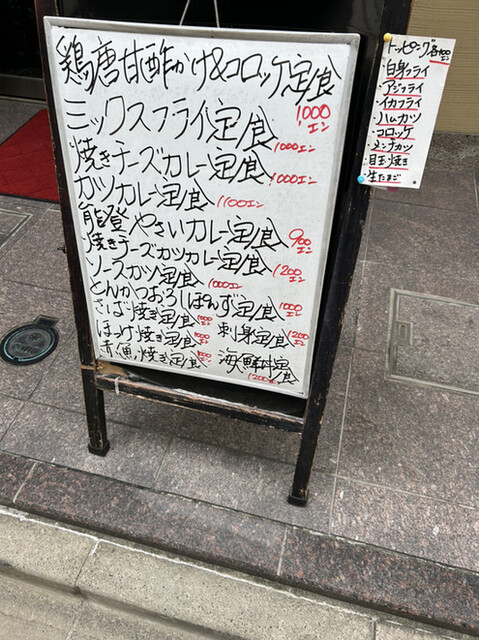 鶏唐甘酢かけ&コロッケ定食
1000エン
ミックスフライ定食 1000エン
焼きチーズカレー定食 1000エン
カツカレー定食 1100エン
能登やさいカレー定食 900エン
焼きチーズカツカレー定食 1200エン
ソースカツ定食 1000エン
とんかつおろしぽんず定食 1000エン
さば焼き定食 1000エン 刺身定食 1200エン
ほっけ焼き定食 1000エン
青魚焼き定食 海鮮丼定食 1200エン
トッピング各100エン
・白身フライ
・アジフライ
・イカフライ
・ハムカツ
・コロッケ
・メンチカツ
・目玉焼き
・生たまご